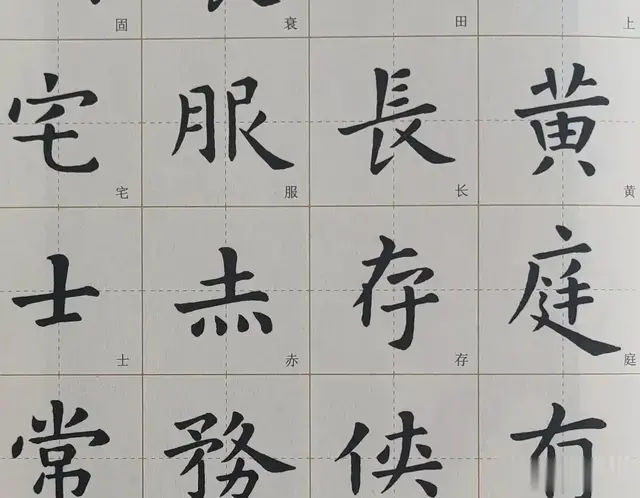 黄庭有
上黄庭
長存侠
田长存
服赤務
衰服赤
宅士常
固宅士